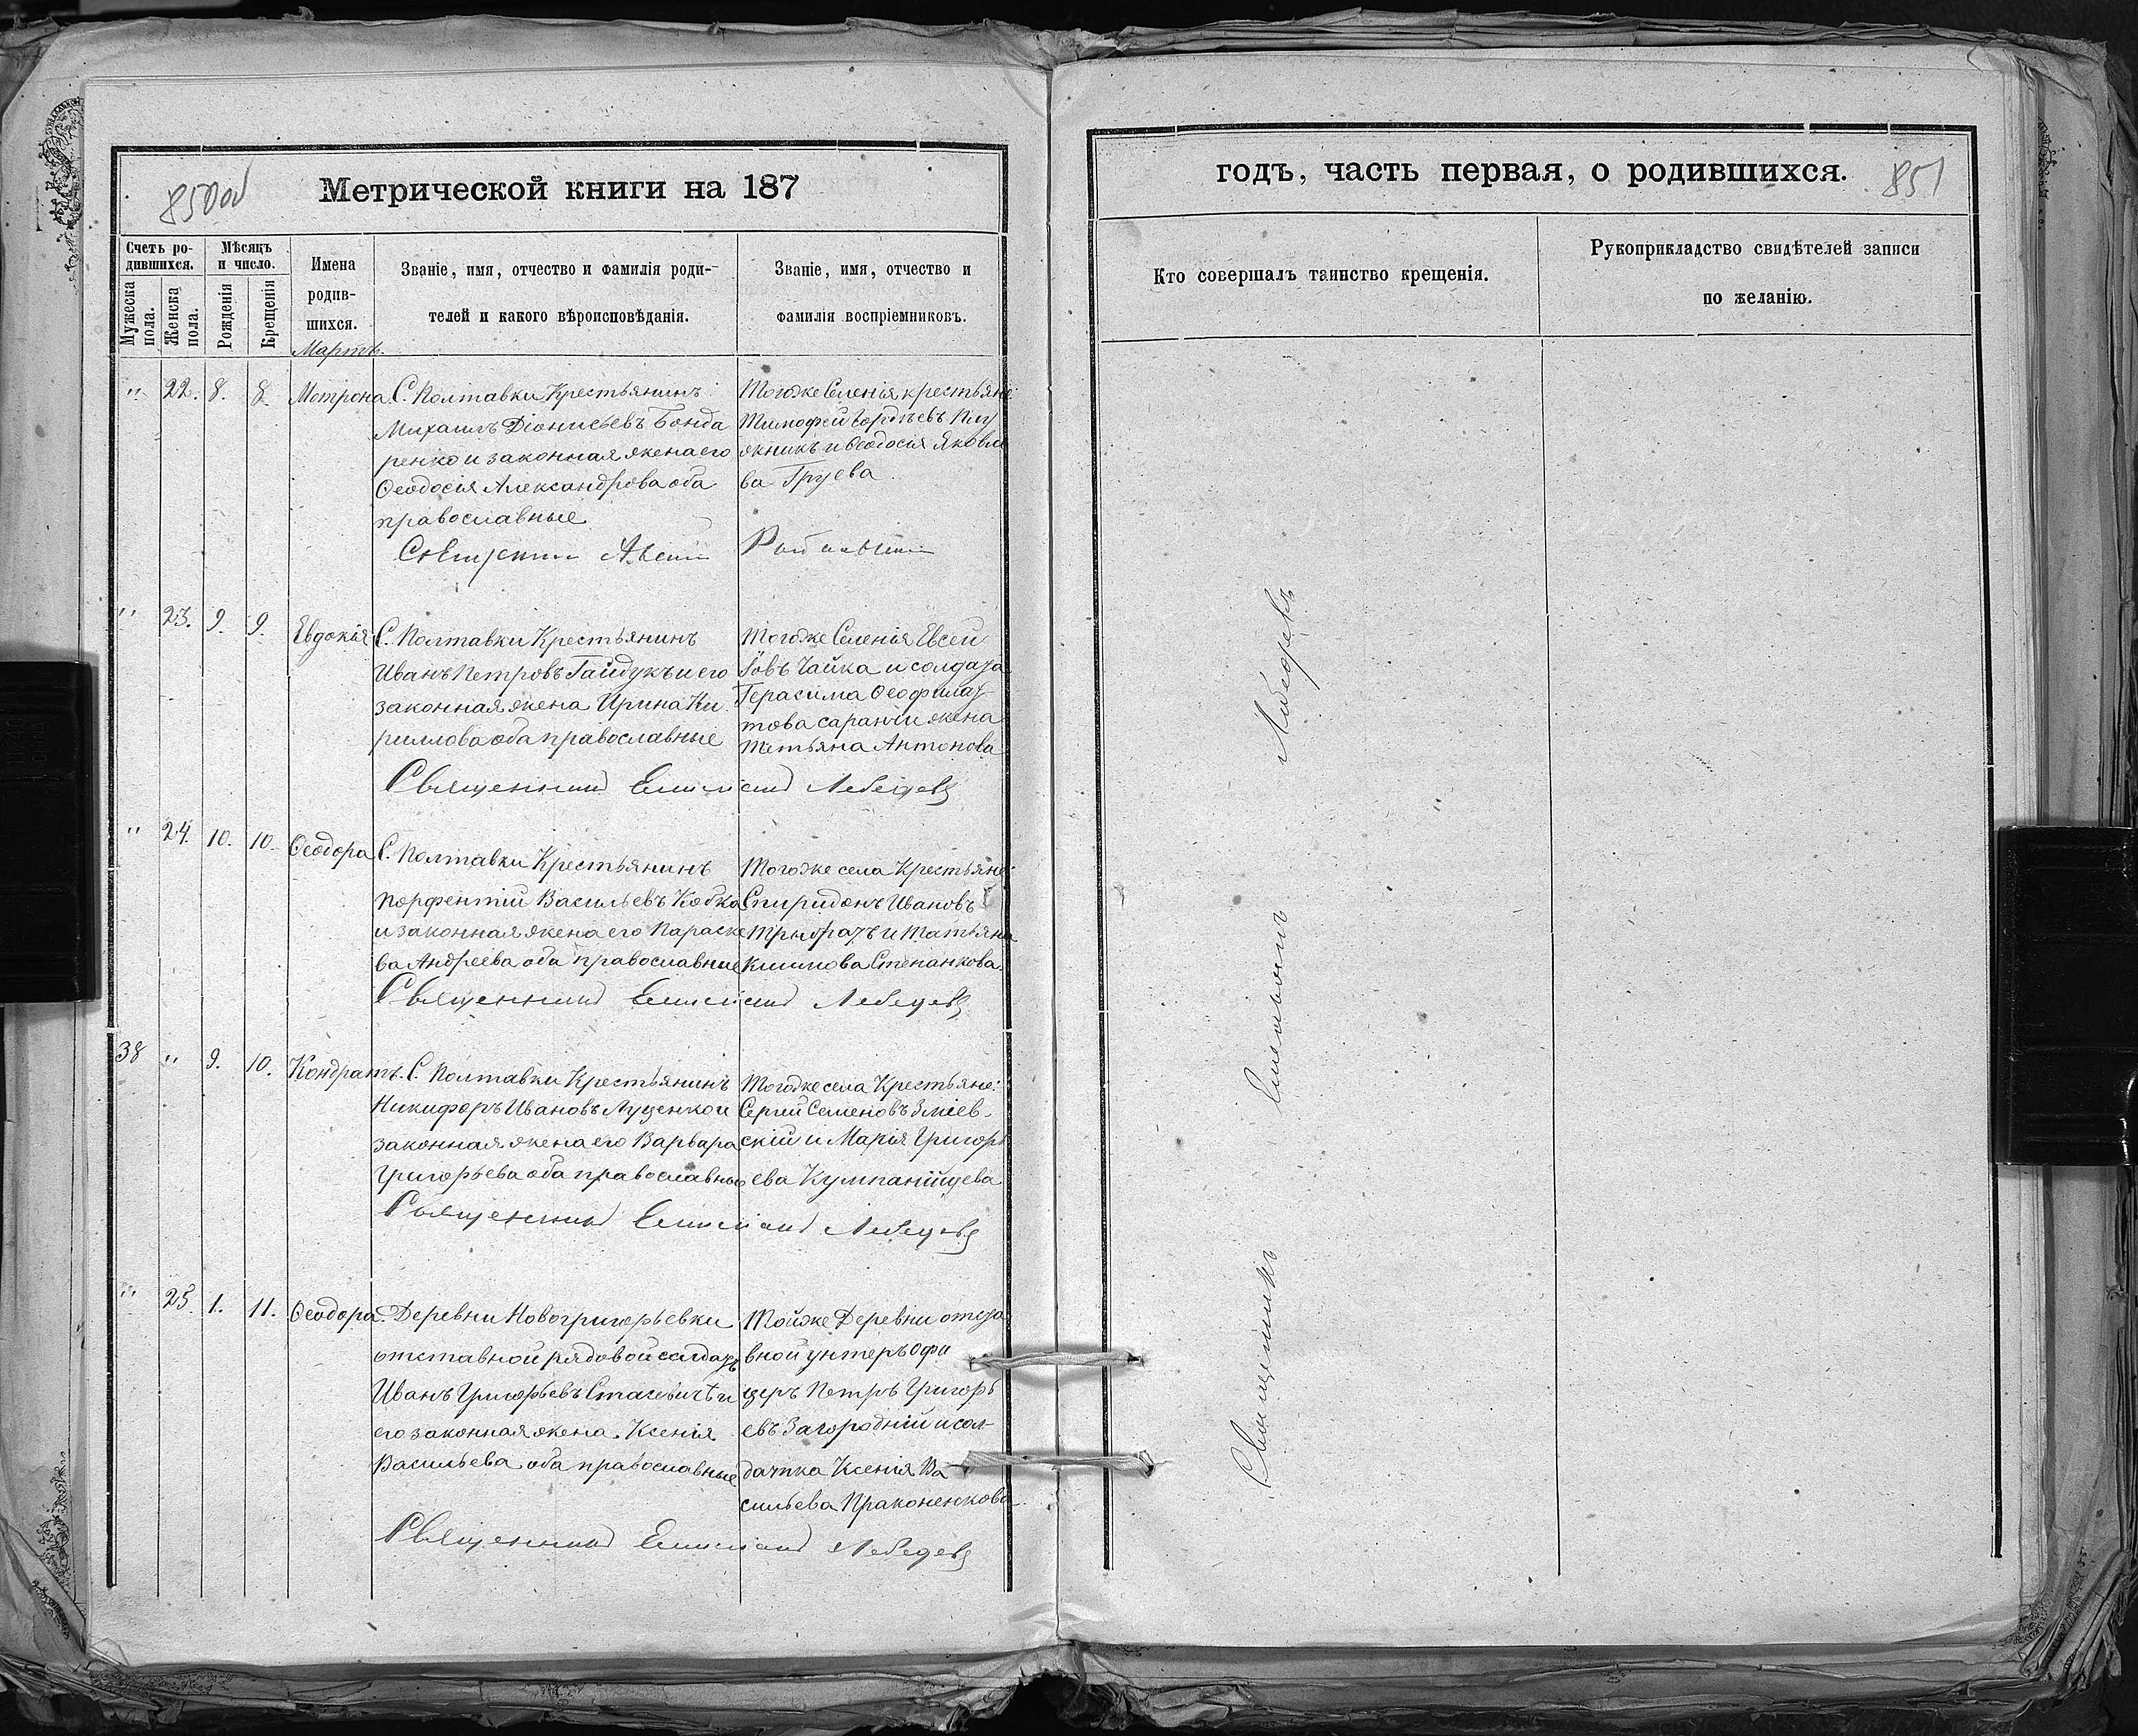 850об
Метрической книги на 187
Счетъ ро-
дившихся.
Мѣсяцъ
и число.
Мужеска
пола.
Женска
пола.
Рожденія
Крещенія
Имена
родив-
шихся.
Званіе, имя, отчество и фамилія роди-
телей и какого вѣроисповѣданія.
Званіе, имя, отчество и
фамилія воспріемниковъ.
Мартъ.
" 22. 8. 8. Мотрона С. Полтавки Крестьянинъ
Михаилъ Діонисьевъ Бонда
ренко и законная жена его
Ѳеодосія Александрова оба
православные
Тогоже Селенія крестьяне:
Тимофей Гордѣевъ Плу
жникъ и Ѳеодосія Яковле
ва Груева
" 23. 9. 9. Евдокія С. Полтавки Крестьянинъ
Иванъ Петровъ Гайдукъ и его
законная жена Ирина Ки
риллова оба православные
Тогоже Селенія Евсей
Іовъ Чайка и солдата
Герасима Ѳеофилак
това саранчи жена
Татьяна Антонова
Священникъ Емиліанъ Лебедевъ
" 24. 10. 10. Ѳеодора С. Полтавки Крестьянинъ
Порфентій Васильевъ Кобка
и законная жена его Параске
ва Андреева оба православные
Тогоже села Крестьяне:
Спиридонъ Ивановъ
и Татьяна
Климова Степанкова.
Священникъ Емиліанъ Лебедевъ
38 " 9. 10. Кондратъ. С. Полтавки Крестьянинъ
Никифоръ Ивановъ Луценко и
законная жена его Варвара
Григорьева оба православные
Тогоже села Крестьяне:
Сергій Семеновъ Зміев-
скій и Марія Григорь
ева Кумпанійцева
Священникъ Емиліанъ Лебедевъ
" 25. 1. 11. Ѳеодора. Деревни Новогригорьевки
отставной рядовой солдатъ
Иванъ Григорьевъ Стасевичъ и
его законная жена Ксенія
Васильева оба православные
Тойже Деревни отста
вной унтеръ офи
церъ Петръ Григорь
евъ Загородній и сол-
датка Ксенія Ва
сильева Праконенкова.
Священникъ Емиліанъ Лебедевъ
годъ, часть первая, о родившихся.
851
Кто совершалъ таинство крещенія.
Рукоприкладство свидѣтелей записи
по желанію.
Священникъ Емельянъ Лебедевъ